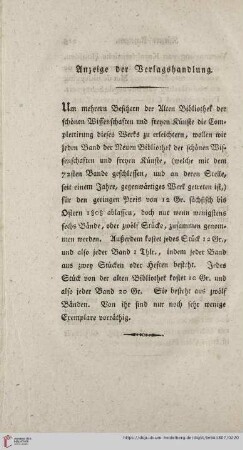 Anzeige der Verlagshandlung.
Um mehrern Besitzern der Alten Bibliothek der
schönen Wissenschaften und freyen Künste die Com-
plettirung dieses Werks zu erleichtern, wollen wir
jeden Band der Neuen Bibliothek der schönen Wis-
senschaften und freyen Künste, (welche mit dem
72sten Bande geschlossen, und an deren Stelle,
seit einem Jahre, gegenwärtiges Werk getreten ist,) für
den geringen Preis von 12 Gr. sächsisch bis
Ostern 1808 ablassen, doch nur wenn wenigstens
sechs Bände, oder zwölf Stücke, zusammen genom-
men werden. Außerdem kostet jedes Stück 12 Gr.,
und also jeder Band 1 Thlr., indem jeder Band
aus zwey Stücken oder Heften besteht. Jedes
Stück von der alten Bibliothek kostet 10 Gr. und
also jeder Band 20 Gr. Sie besteht aus zwölf
Bänden. Von ihr sind nur noch sehr wenige
Exemplare vorräthig.